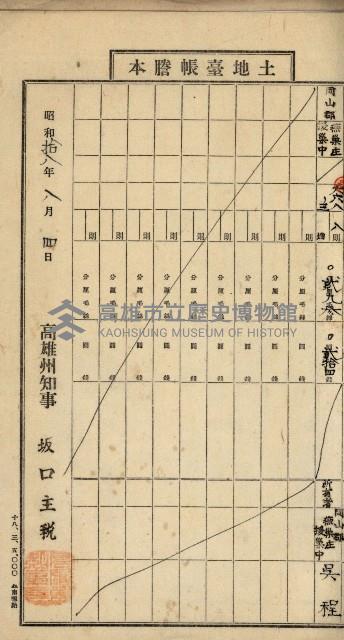 土地臺帳謄本
岡山郡
燕巢庄
援巢中
六八
八則
則 則 則 則 則 則 則 則
〇貳九参
分厘毛絲 分厘毛絲 分厘毛絲 分厘毛絲 分厘毛絲 分厘毛絲 分厘毛絲 分厘毛絲
〇貳拾四
圓錢 圓錢 圓錢 圓錢 圓錢 圓錢 圓錢 圓錢
所有者
岡山郡
燕巢庄
援巢中
吳程
昭和拾八年八月四日
高雄州知事 坂口主税
十八、三、五、〇〇〇
高雄市立歷史博物館
KAOHSIUNG MUSEUM OF HISTORY